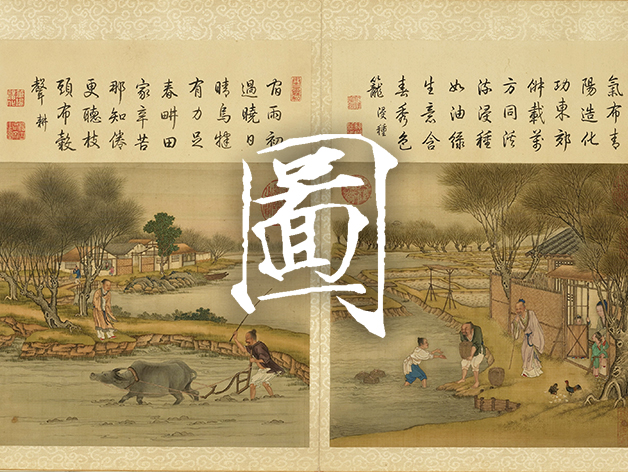 氣布青
陽造化
功東郊
俶載萬
方同溪
流浸種
如油綠
生意含
春秀色
籠 浸種
宿雨初
過曉日
晴烏犍
有力足
春畊田
家辛苦
那知倦
更聽枝
頭布穀
聲 耕
圖